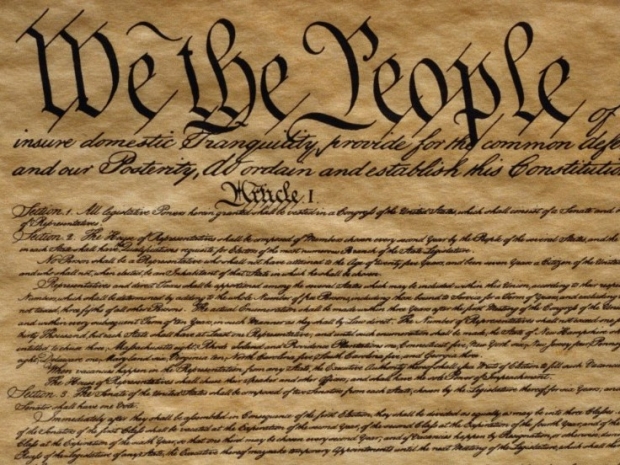 We the People of
insure domestic Tranquility, provide for the common defe
and our Posterity, do ordain and establish this Constitutio
Article. I.
Section. 1. All legislative Powers herein granted shall be vested in a Congress of the United States, which shall consist of a Senate and
of Representatives.
Section. 2. The House of Representatives shall be composed of Members chosen every second Year by the People of the several States, and the
in each State shall have Qualifications requisite for Electors of the most numerous Branch of the State Legislature.
No Person shall be a Representative who shall not have attained to the Age of twenty five Years, and been seven Years a Citizen of the United
and who shall not, when elected, be an Inhabitant of that State in which he shall be chosen.
Representatives and direct Taxes shall be apportioned among the several States which may be included within this Union, according to their
Numbers, which shall be determined by adding to the whole Number of free Persons, including those bound to Service for a Term of Years, and excluding
not taxed, three fifths of all other Persons. The actual Enumeration shall be made within three Years after the first Meeting of the Congress of the
and within every subsequent Term of ten Years, in such Manner as they shall by Law direct. The Number of Representatives shall not exceed
thirty Thousand, but each State shall have at Least one Representative; and until such enumeration shall be made, the State of New Hampshire
entitled to chuse three, Massachusetts eight, Rhode Island and Providence Plantations one, Connecticut five, New York six, New Jersey four, Pennsyl
eight, Delaware one, Maryland six, Virginia ten, North Carolina five, South Carolina five, and Georgia three.
When vacancies happen in the Representation from any State, the Executive Authority thereof shall issue Writs of Election to fill such Vacancies.
The House of Representatives shall chuse their Speaker and other Officers; and shall have the sole Power of Impeachment.
Section. 3. The Senate of the United States shall be composed of two Senators from each State, chosen by the Legislature thereof, for six Years; and
Senator shall have one Vote.
Immediately after they shall be assembled in Consequence of the first Election, they shall be divided as equally as may be into three Classes.
of the Senators of the first Class shall be vacated at the Expiration of the second Year, of the second Class at the Expiration of the fourth Year, and of the
Class at the Expiration of the sixth Year, so that one third may be chosen every second Year; and if Vacancies happen by Resignation, or otherwise,
Recess of the Legislature of any State, the Executive thereof may make temporary Appointments until the next Meeting of the Legislature, which shall